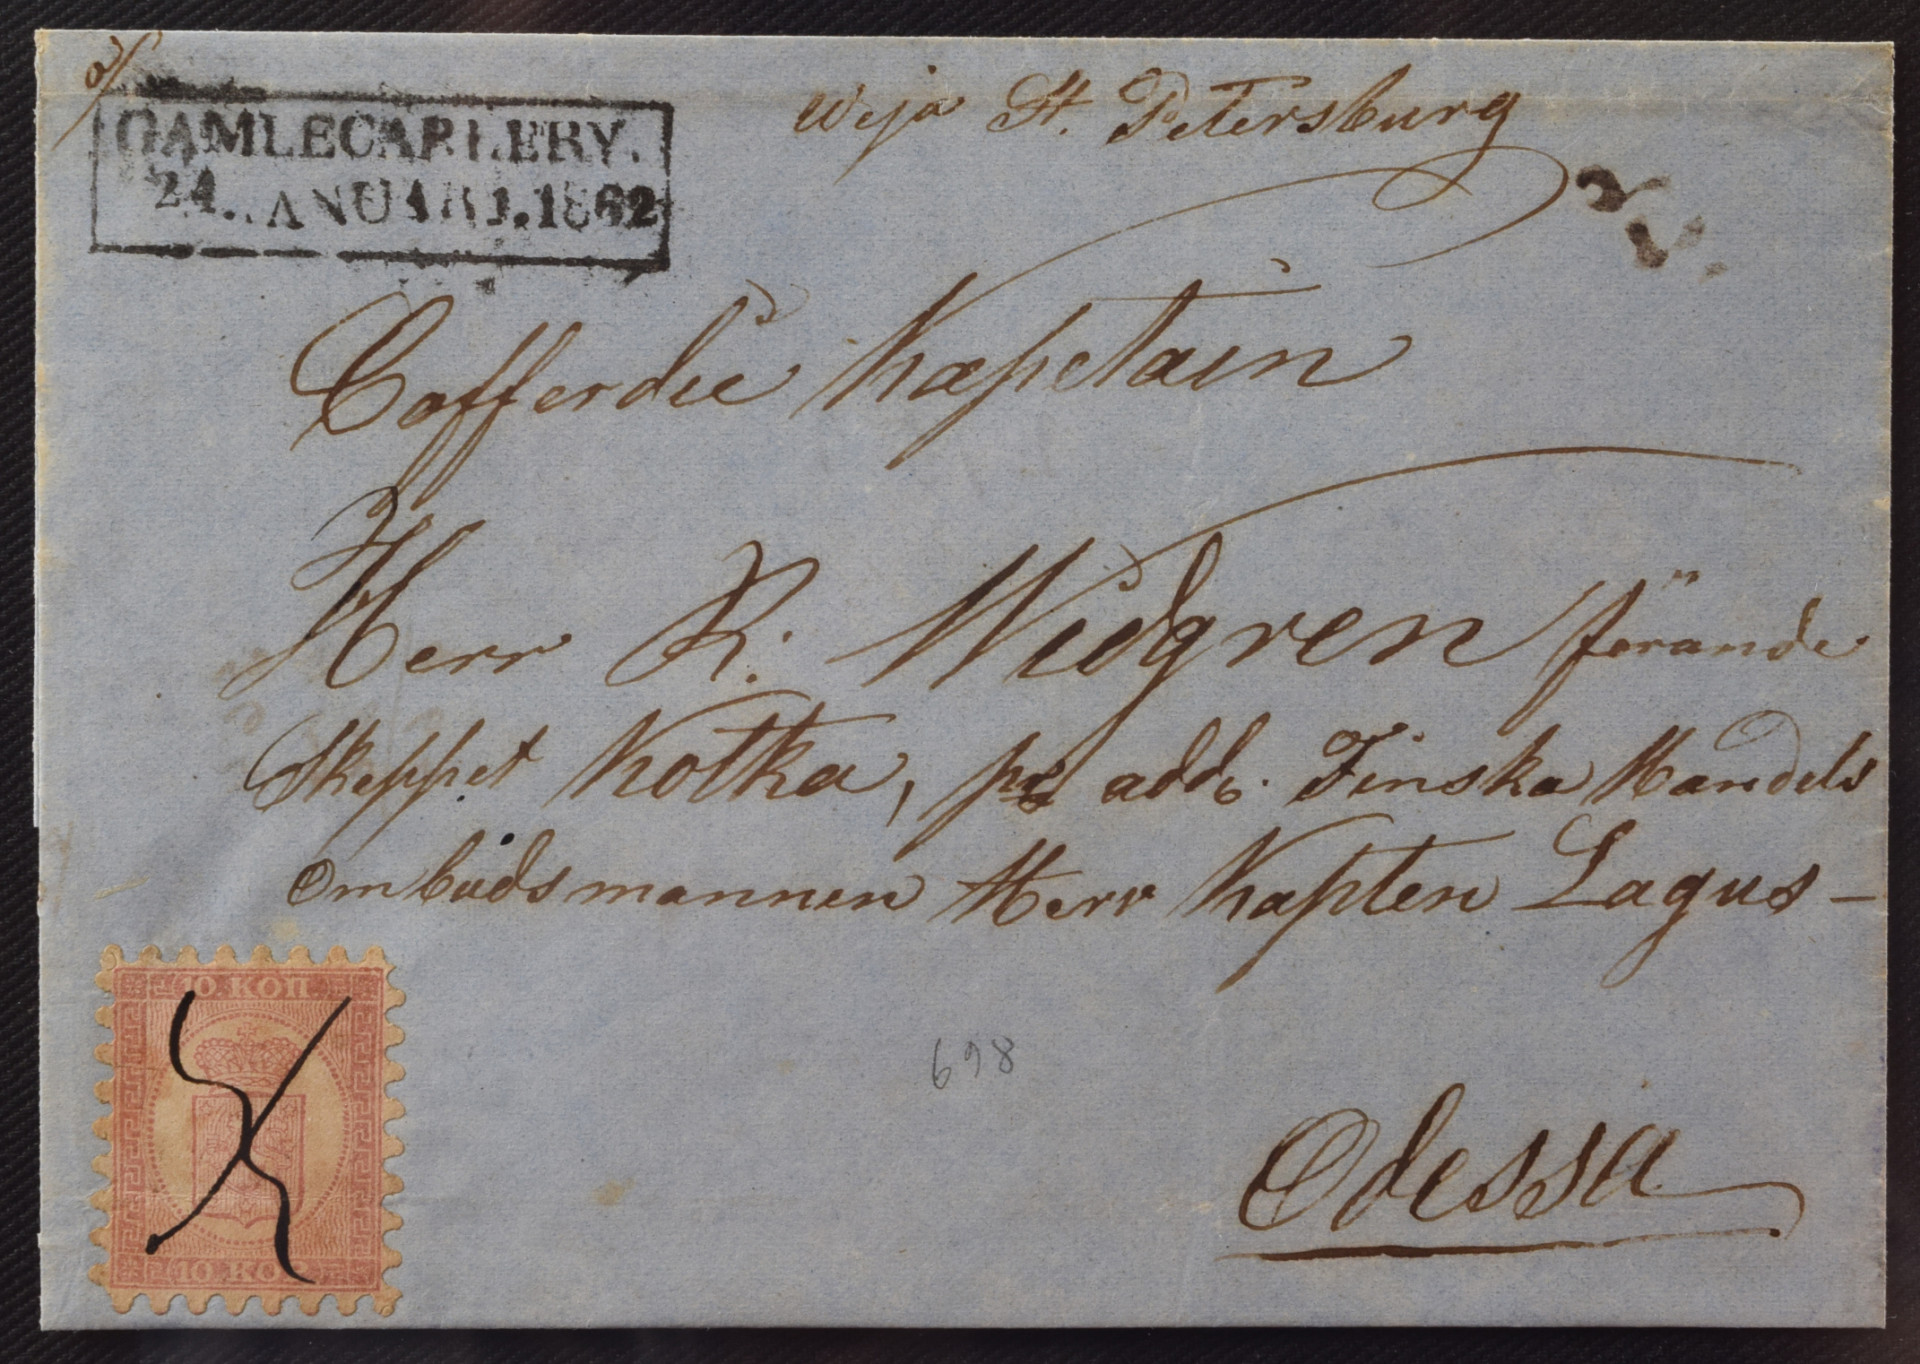 Weja St. Petersburg
GAMLECARLEBY.
24. JANUARI. 1862
Cofferdie Kapetain
Herr R. Widgren förande
Skeppet Kotka, pr add. Finska Handels
Ombudsmannen Herr Kapten Lagus -
10 КОП.
10 КОП.
698
Odessa